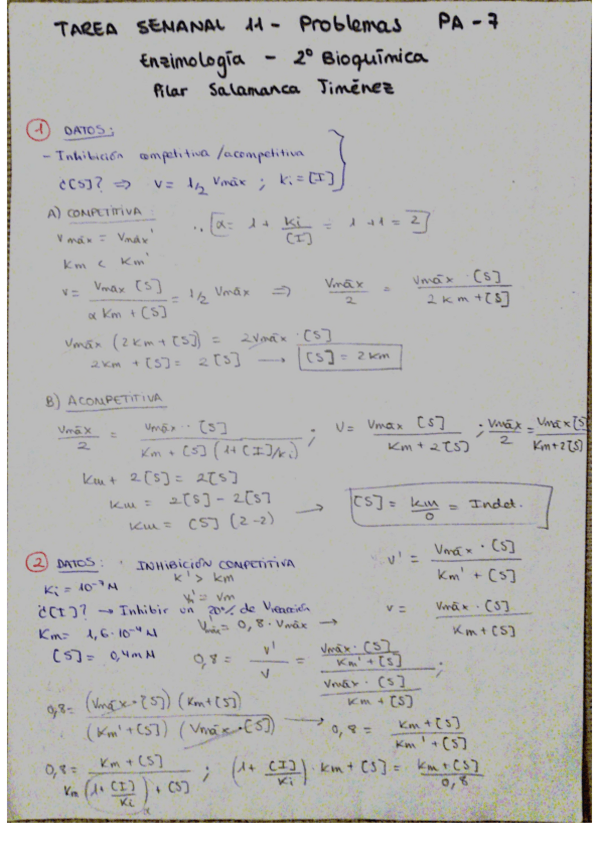 TAREA SEMANAL 11 - Problemas PA - 7
Enzimología - 2º Bioquímica
Pilar Salamanca Jiménez
1 DATOS:
- Inhibición competitiva / acompetitiva
¿[S]? ⇒ V = 1/2 Vmáx ; Ki = [I]
A) COMPETITIVA
Vmáx = Vmáx' ∴ [α = 1 + Ki/[I] = 1 + 1 = 2]
Km < Km'
V = Vmáx [S] / α Km + [S] = 1/2 Vmáx ⇒ Vmáx / 2 = Vmáx · [S] / 2Km + [S]
Vmáx (2Km + [S]) = 2Vmáx · [S]
2Km + [S] = 2[S] → [S] = 2Km
B) ACOMPETITIVA
Vmáx / 2 = Vmáx · [S] / Km + [S] (1 + [I]/Ki) ; V = Vmax [S] / Km + 2[S] ; Vmáx / 2 = Vmáx [S] / Km + 2[S]
Km + 2[S] = 2[S]
Km = 2[S] - 2[S]
Km = [S] (2-2) → [S] = Km / 0 = Indet.
2 DATOS: · INHIBICIÓN COMPETITIVA
K' > Km
V' = Vmáx · [S] / Km' + [S]
Ki = 10⁻⁷ M
= Vm
¿[I]? → Inhibir un 20% de Vreacción
V = Vmáx · [S] / Km + [S]
Km = 1,6·10⁻⁴ M = 0,8 · Vmáx →
[S] = 0,4 mM
0,8 = V' / V = Vmáx · [S] / Km' + [S] / Vmáx · [S] / Km + [S] ;
0,8 = (Vmáx · [S]) (Km + [S]) / (Km' + [S]) (Vmáx · [S]) → 0,8 = Km + [S] / Km' + [S]
0,8 = Km + [S] / Km (1 + [I]/Ki) + [S] ; (1 + [I]/Ki) · Km + [S] = Km + [S] / 0,8